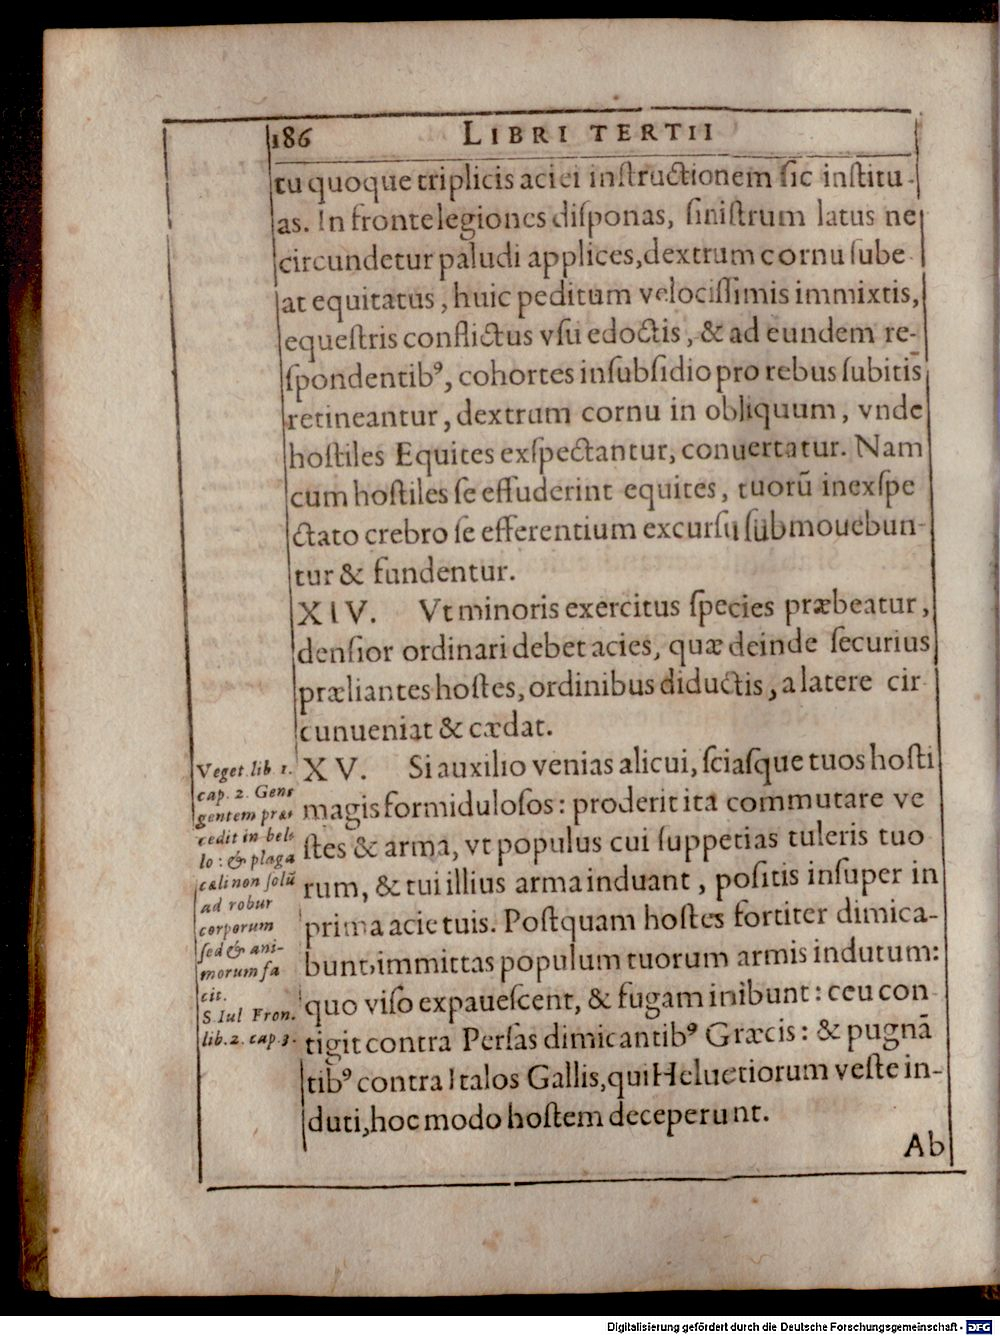 186 LIBRI TERTII
tu quoque triplicis aciei inſtructionem ſic inſtitu-
as. In fronte legiones diſponas, ſiniſtrum latus ne
circundetur paludi applices, dextrum cornu ſube
at equitatus, huic peditum velociſſimis immixtis,
equeſtris conflictus vſu edoctis, & ad eundem re-
ſpondentibꝰ, cohortes in ſubſidio pro rebus ſubitis
retineantur, dextrum cornu in obliquum, vnde
hoſtiles Equites exſpectantur, conuertatur. Nam
cum hoſtiles ſe effuderint equites, tuorū inexſpe
ctato crebro ſe efferentium excurſu ſubmouebun-
tur & fundentur.
XIV. Vt minoris exercitus ſpecies præbeatur,
denſior ordinari debet acies, quæ deinde ſecurius
præliantes hoſtes, ordinibus diductis, a latere cir
cunueniat & cædat.
XV. Si auxilio venias alicui, ſciaſque tuos hoſti
magis formiduloſos: proderit ita commutare ve
ſtes & arma, vt populus cui ſuppetias tuleris tuo
rum, & tui illius arma induant, poſitis inſuper in
prima acie tuis. Poſtquam hoſtes fortiter dimica-
bunt, immittas populum tuorum armis indutum:
quo viſo expaueſcent, & fugam inibunt: ceu con
tigit contra Perſas dimicantibꝰ Græcis: & pugnā
tibꝰ contra Italos Gallis, qui Heluetiorum veſte in-
duti, hoc modo hoſtem deceperunt.
Ab
Veget. lib. 1.
cap. 2. Gens
gentem præ-
cedit in bel-
lo: & plaga
cæli non ſolū
ad robur
corporum
ſed & ani-
morum fa
cit.
S. Iul Fron.
lib. 2. cap. 3.
Digitalisierung gefördert durch die Deutsche Forschungsgemeinschaft - DFG